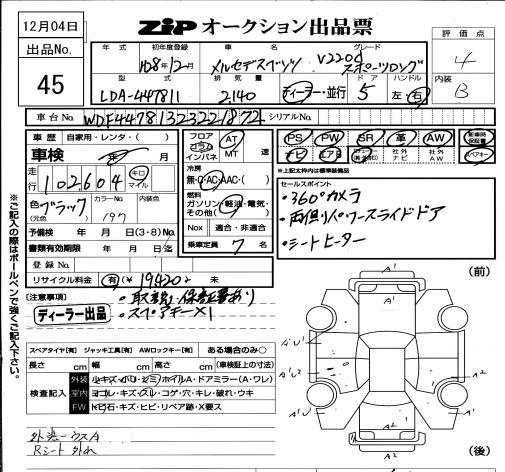 12月04日
ZiP オークション出品票
出品No.
45
評価点
4
内装
B
年式 初年度登録 車名 グレード
H28年12月 メルセデスベンツ V220d スポーツロング
型式 排気量 ドア ハンドル
LDA-447811 2,140 ディーラー・並行 5 左・右
車台No. WDF44781323221872 シリアルNo.
車歴 自家用・レンタ・( )
車検 年 月
走行 102,604 キロ マイル
色 ブラック (元色) カラーNo. 197 内装色
予備検 年 月 日(3・8)No.
書類有効期限 年 月 日迄
登録No.
リサイクル料金 有(¥ 19420 )・未
フロア コラム インパネ AT MT 速
冷房 無・C・AC・AAC・( )
燃料 ガソリン・軽油・電気・その他( )
Nox 適合・非適合
乗車定員 7 名
PS PW SR 革 AW 新車時保証書
ナビ エアB 社外ナビ 社外AW スペアキー
※上記太枠内は標準装備品
セールスポイント
・360°カメラ
・両側パワースライドドア
・シートヒーター
[注意事項]
・取説・保証書あり
・スペアキー×1
ディーラー出品
スペアタイヤ[有] ジャッキ工具[有] AWロックキー[有] ある場合のみ○
長さ cm 幅 cm 高さ cm (車検証上の寸法)
検査記入
外装 小キズ・小ハリ・シミ・ホイルA・ドアミラー(A・ワレ)
室内 ヨゴレ・キズ・スレ・コゲ・穴・キレ・破れ・ウキ
FW トビ石・キズ・ヒビ・リペア跡・X要ス
Rシート
※ご記入の際はボールペンで強くご記入下さい。
(前)
A'
A'
A'
A2
A2
A'
A'
(後)